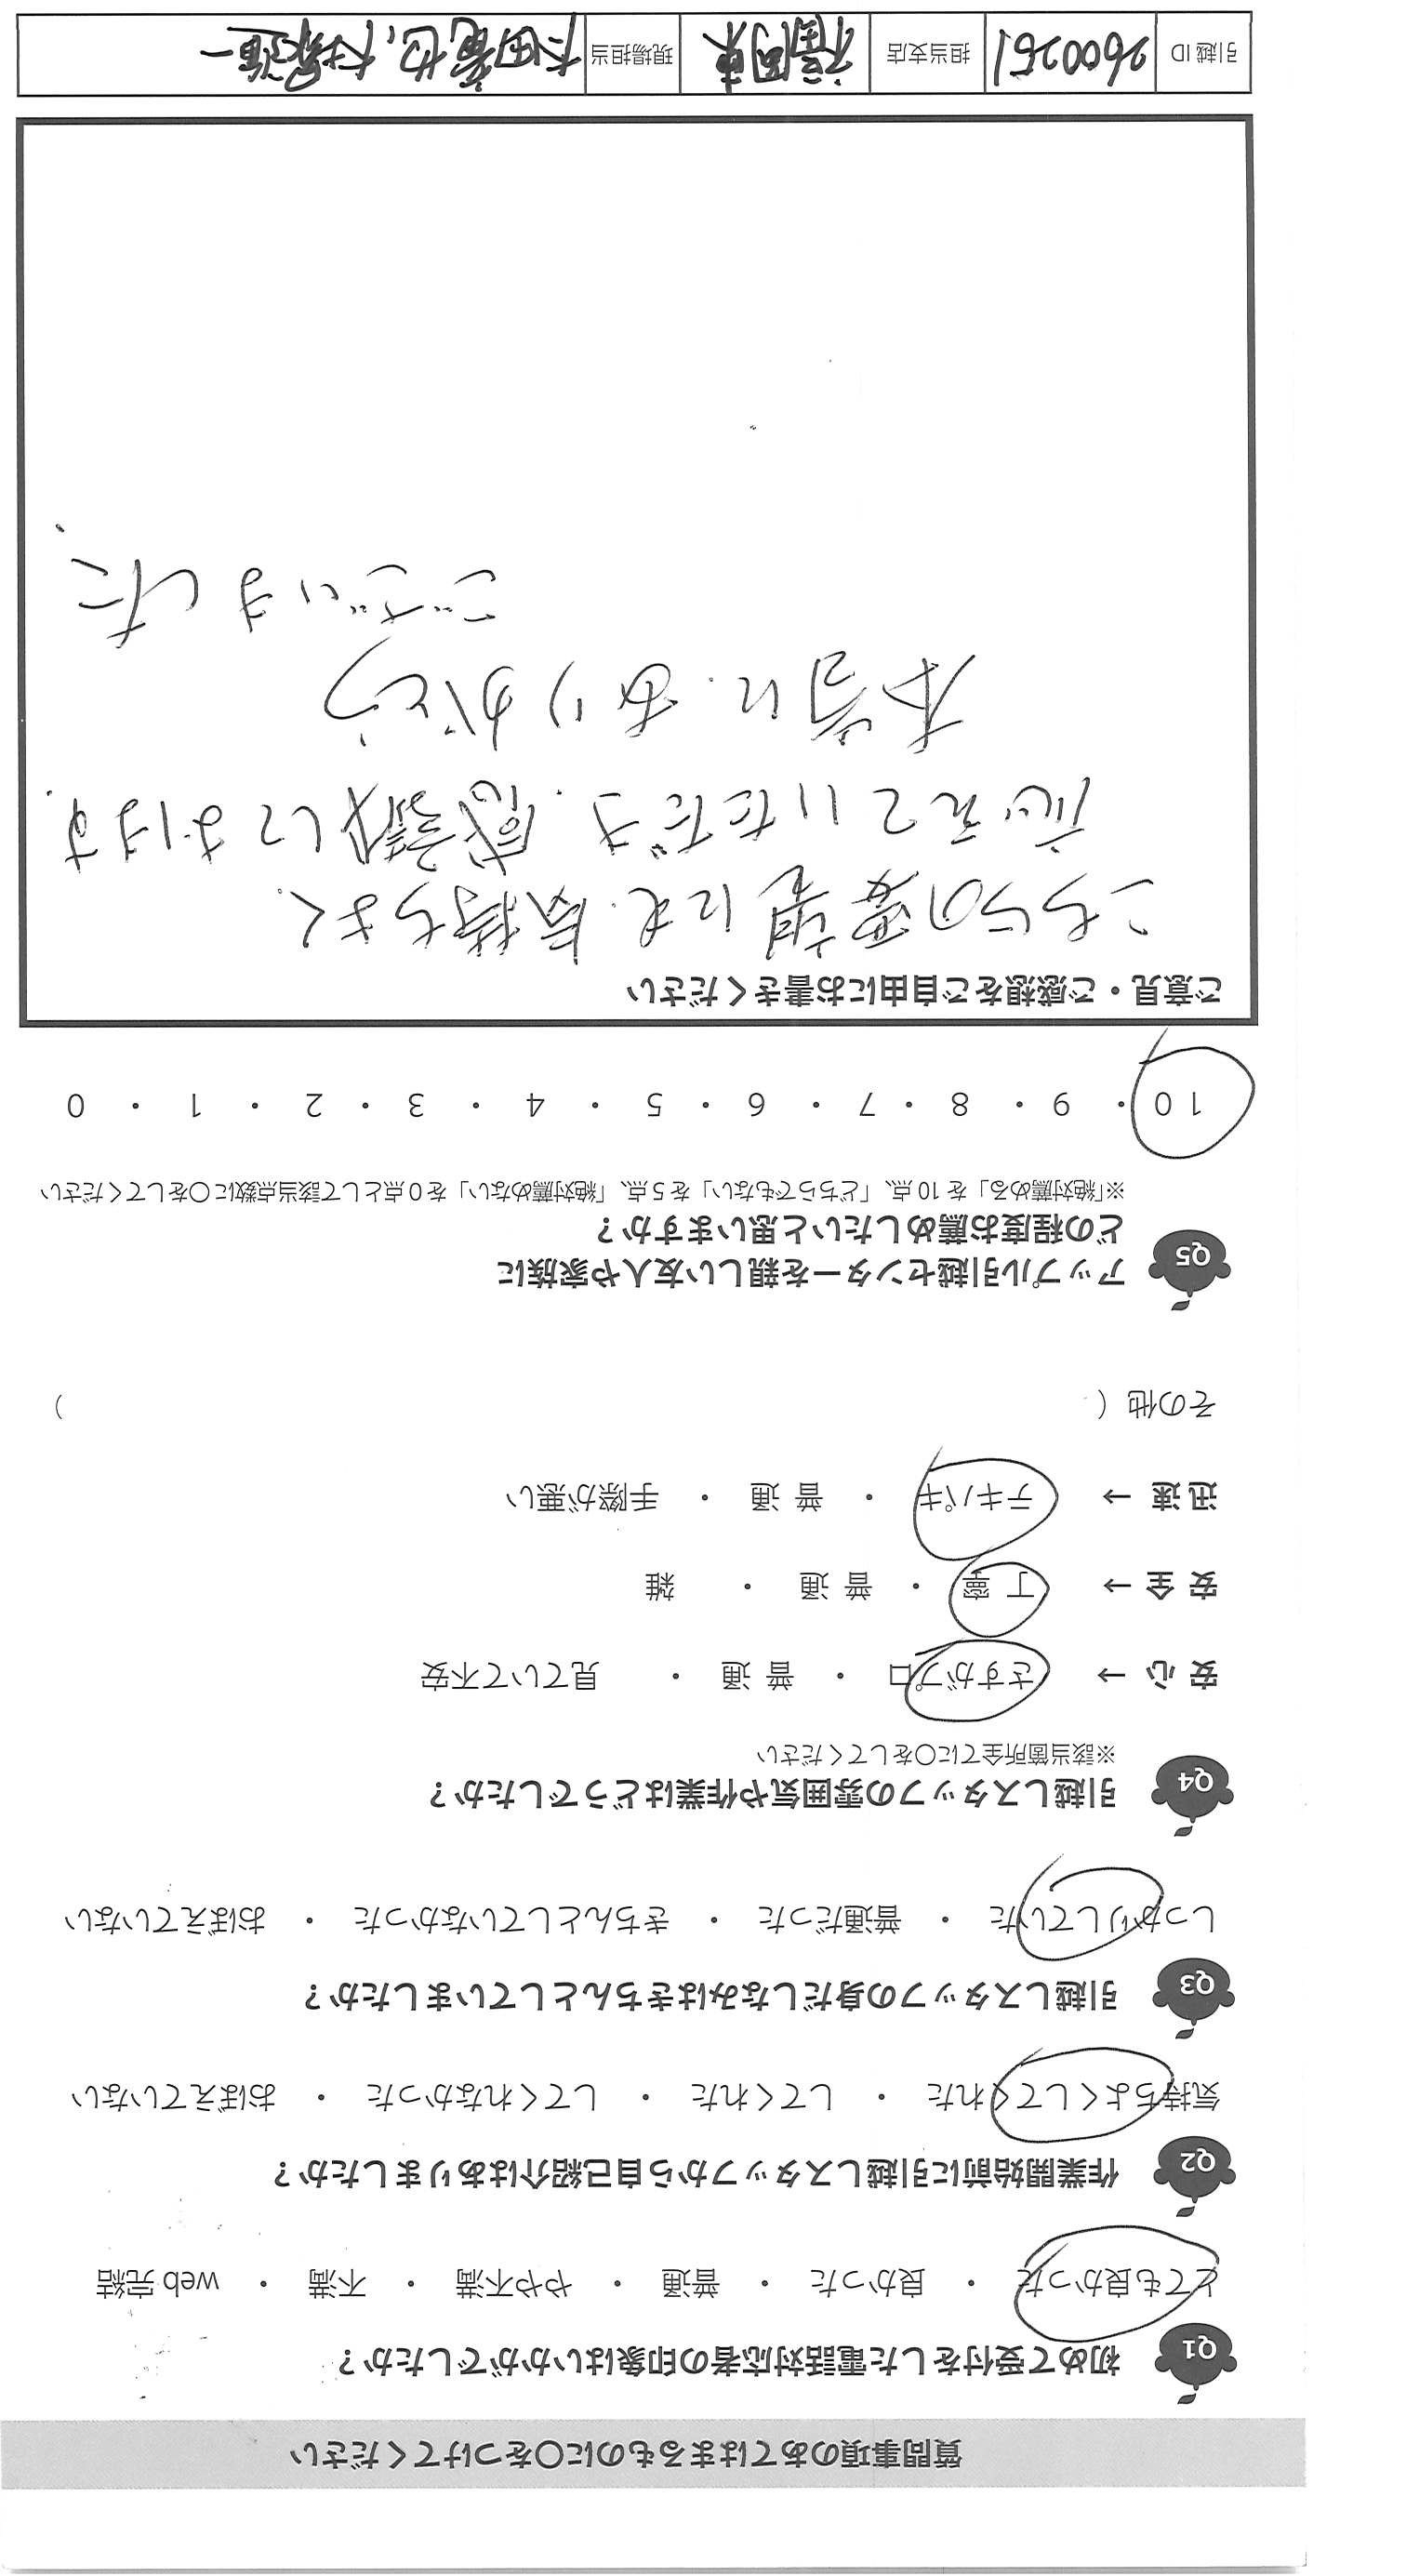 質問事項のあてはまるものに〇をつけてください
Q1 初めて受付をした電話対応者の印象はいかがでしたか？
とても良かった ・ 良かった ・ 普通 ・ やや不満 ・ 不満 ・ web 完結
Q2 作業開始前に引越しスタッフから自己紹介はありましたか？
気持ちよくしてくれた ・ してくれた ・ してくれなかった ・ おぼえていない
Q3 引越しスタッフの身だしなみはきちんとしていましたか？
しっかりしていた ・ 普通だった ・ きちんとしていなかった ・ おぼえていない
Q4 引越しスタッフの雰囲気や作業はどうでしたか？
※該当箇所全てに〇をしてください
安 心 → さすがプロ ・ 普 通 ・ 見ていて不安
安 全 → 丁 寧 ・ 普 通 ・ 雑
迅 速 → テキパキ ・ 普 通 ・ 手際が悪い
その他（ ）
Q5 アップル引越センターを親しい友人や家族に
どの程度お薦めしたいと思いますか？
※「絶対薦める」を 10 点、「どちらでもない」を 5 点、「絶対薦めない」を 0 点として該当点数に〇をしてください
10 ・ 9 ・ 8 ・ 7 ・ 6 ・ 5 ・ 4 ・ 3 ・ 2 ・ 1 ・ 0
ご意見・ご感想をご自由にお書きください
こちらの要望にも、気持ちよく
応えていただき、感謝しております。
本当に、ありがとう
ございました、
引越 ID 2600251 担当支店 福岡東 現場担当